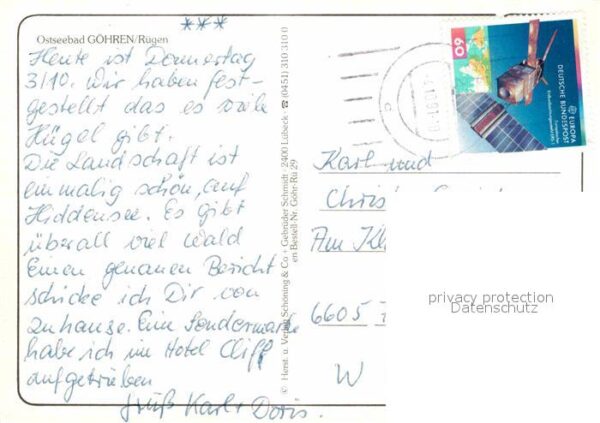 ***
Ostseebad GÖHREN/Rügen
Heute ist Donnerstag
3/10. Wir haben fest-
gestellt das es viele
Hügel gibt.
Die Landschaft ist
einmalig schön, auf
Hiddensee. Es gibt
überall viel Wald
Einen genauen Bericht
schicke ich Dir von
zuhause. Eine Sondermarke
habe ich im Hotel Cliff
aufgetrieben
Gruß Karl + Doris.
© Herst. u. Verlag Schöning & Co + Gebrüder Schmidt · 2400 Lübeck · ☎ (0451) 310 310 0
en Bestell-Nr. Göhr-Rü 29
60
DEUTSCHE BUNDESPOST
EUROPA
Karl und
Christ
Am Kl
6605
W
privacy protection
Datenschutz